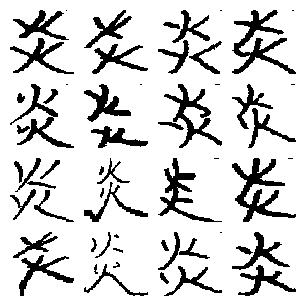 炎炎炎炎
炎炎炎炎
炎炎炎炎
炎炎炎炎